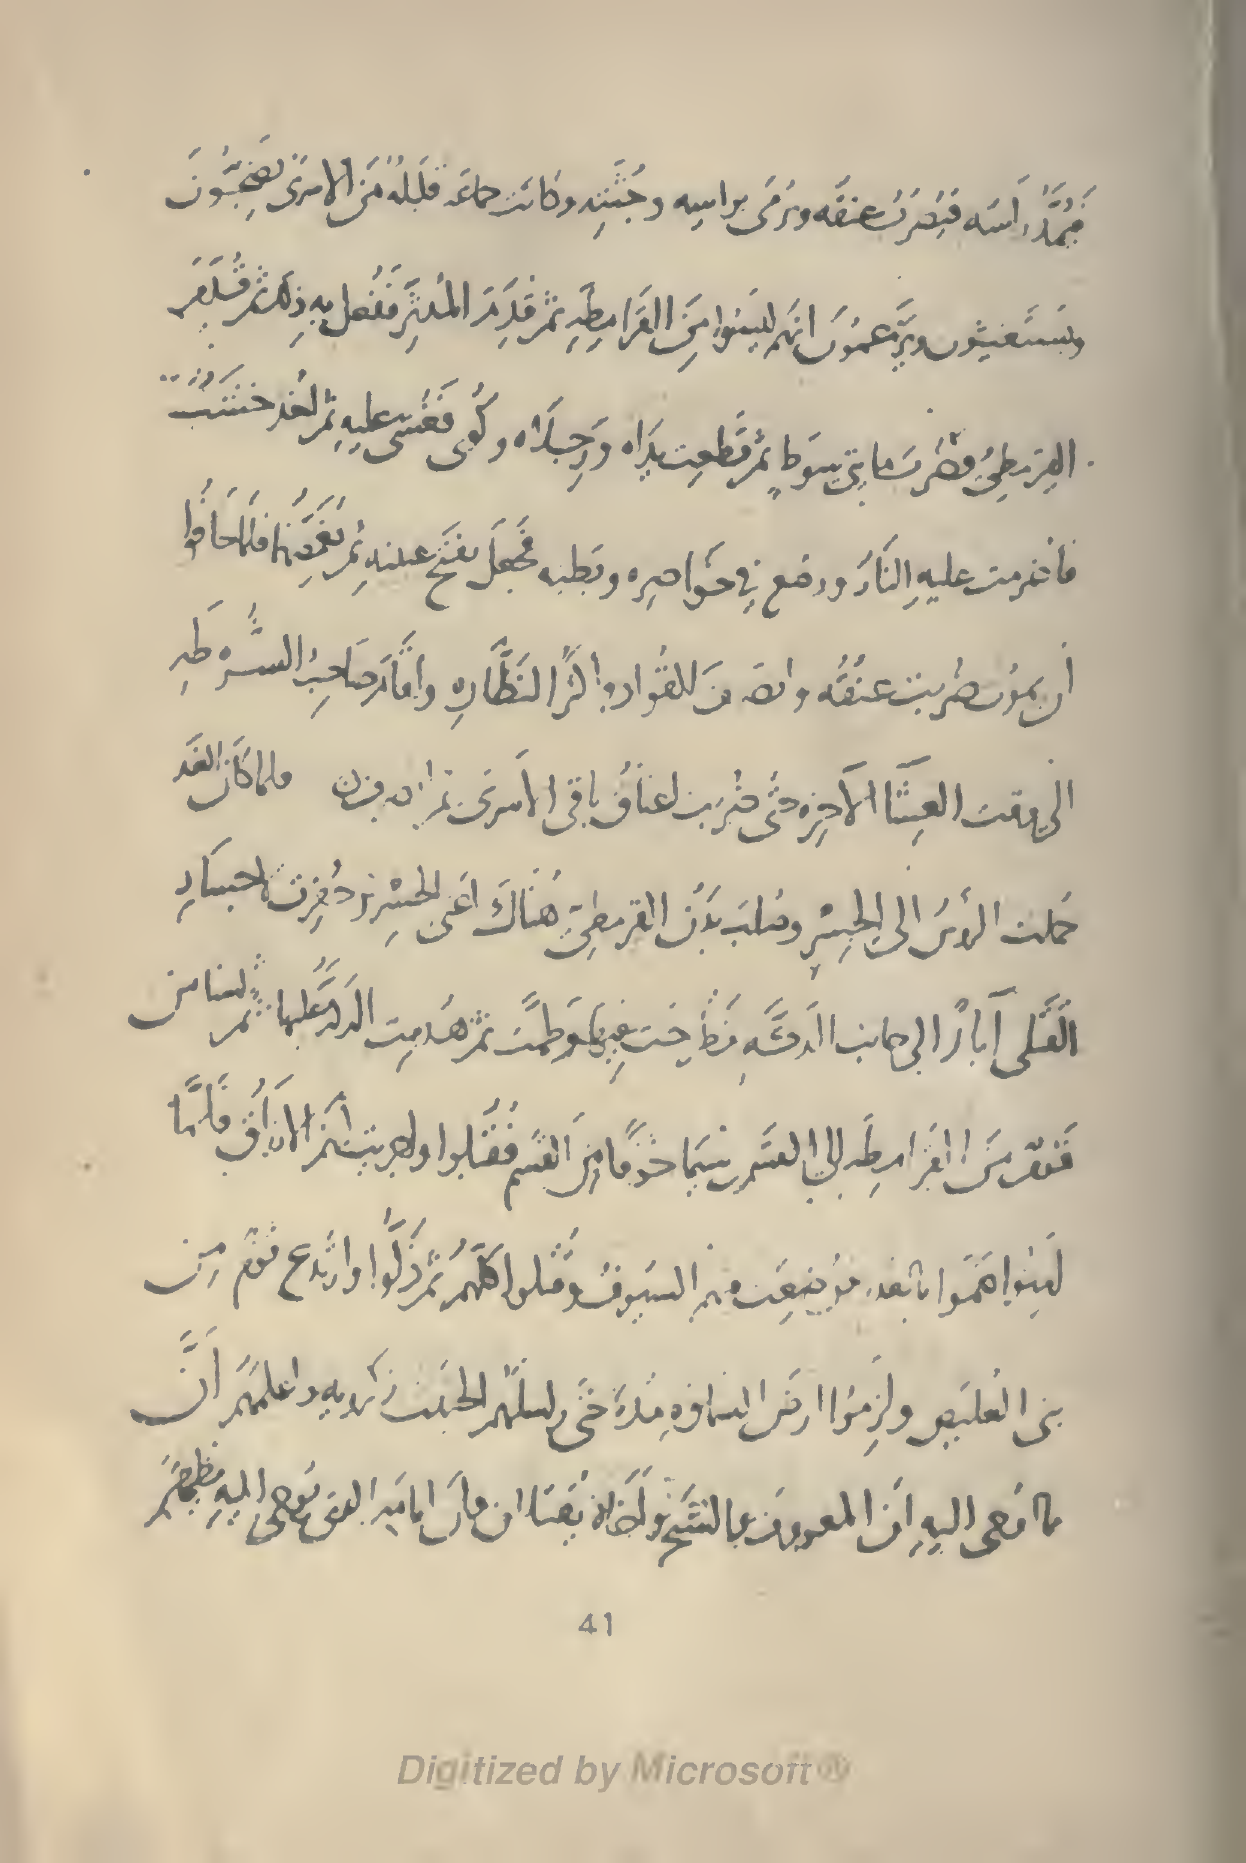 فيمد راسه فيضرب عنقه ويرمى براسه وجثته وكانت جماعة قليلة من الاسرى يضجون
ويستغيثون ويزعمون انهم ليسوا من القرامطة ثم قدم المدثر ففعل به ذلك ثم قدم
القرمطي فضرب مايتي سوط ثم قطعت يداه ورجلاه وكوى فغشى عليه ثم اخذ خشب
فاضرمت عليه النار ووضع في خواصره وبطنه فجعل يفتح عينيه ثم يغمضهما فلما خافوا
أن يموت ضربت عنقه وانصرف القواد واكثر النظارة وأقام صاحب الشرطه
الى وقت العشا الآخره حتى ضربت اعناق باقى الأسرى ثم انصرف فلما كان الغد
حملت الرؤس الى الجسر وصلب بدن القرمطي هناك اعنى الجسر وحفرت لاجساد
القتلى آبار الى جانب الدكه فطرحت فيها وطمت ثم هدمت الدكه
من القرامطه الى القسم من القسم فقتلوا فلما
وضعت فيهم السيوف وقتلوا كلهم ثم ذلوا وارتدع قوم من
بنى العليص ولزموا ارض السماوه مدة حتى راسلهم الخبيث زكرويه واعلمهم أن
مما اوحى اليه ان المعروف بالشيخ واخاه يقتلان وان امامه الذى يوحى اليه يظهر
41
Digitized by Microsoft®